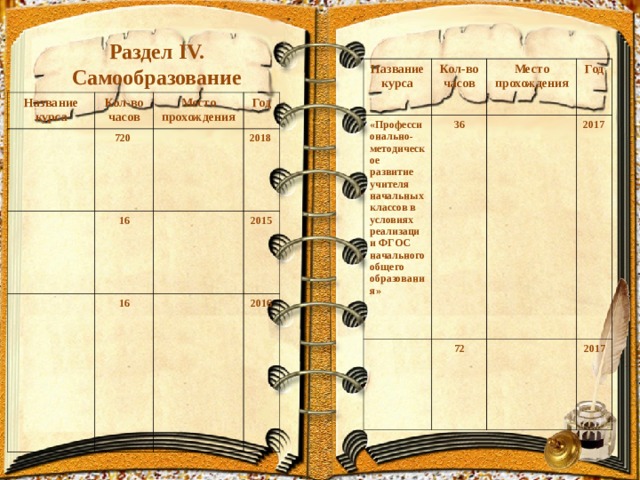 Раздел IV.
Самообразование
Название курса Кол-во часов Место прохождения Год
720 2018
16 2015
16 2016
Название курса Кол-во часов Место прохождения Год
«Професси
онально-
методическ
ое
развитие
учителя
начальных
классов в
условиях
реализаци
и ФГОС
начального
общего
образовани
я»
36 2017
72 2017